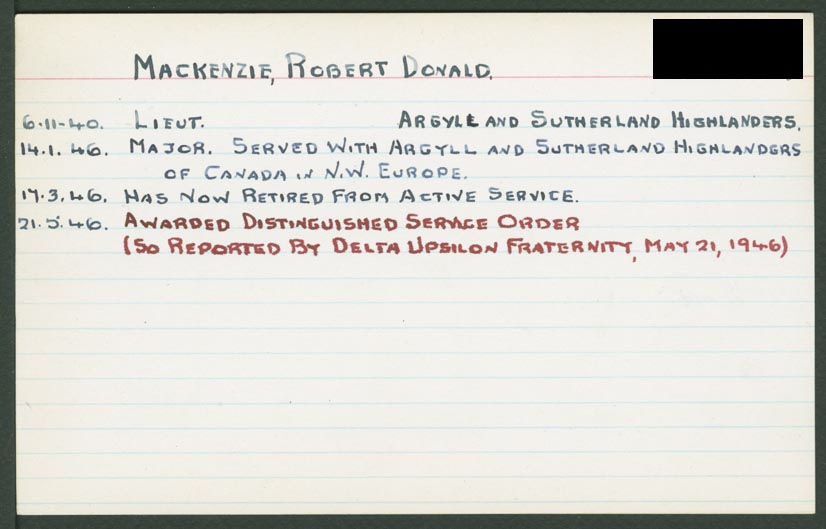 MACKENZIE, ROBERT DONALD.
6·11-40. LIEUT. ARGYLL AND SUTHERLAND HIGHLANDERS.
14.1.46. MAJOR. SERVED WITH ARGYLL AND SUTHERLAND HIGHLANDERS
OF CANADA IN N.W. EUROPE.
17.3.46. HAS NOW RETIRED FROM ACTIVE SERVICE.
21.5.46. AWARDED DISTINGUISHED SERVICE ORDER
(SO REPORTED BY DELTA UPSILON FRATERNITY, MAY 21, 1946)